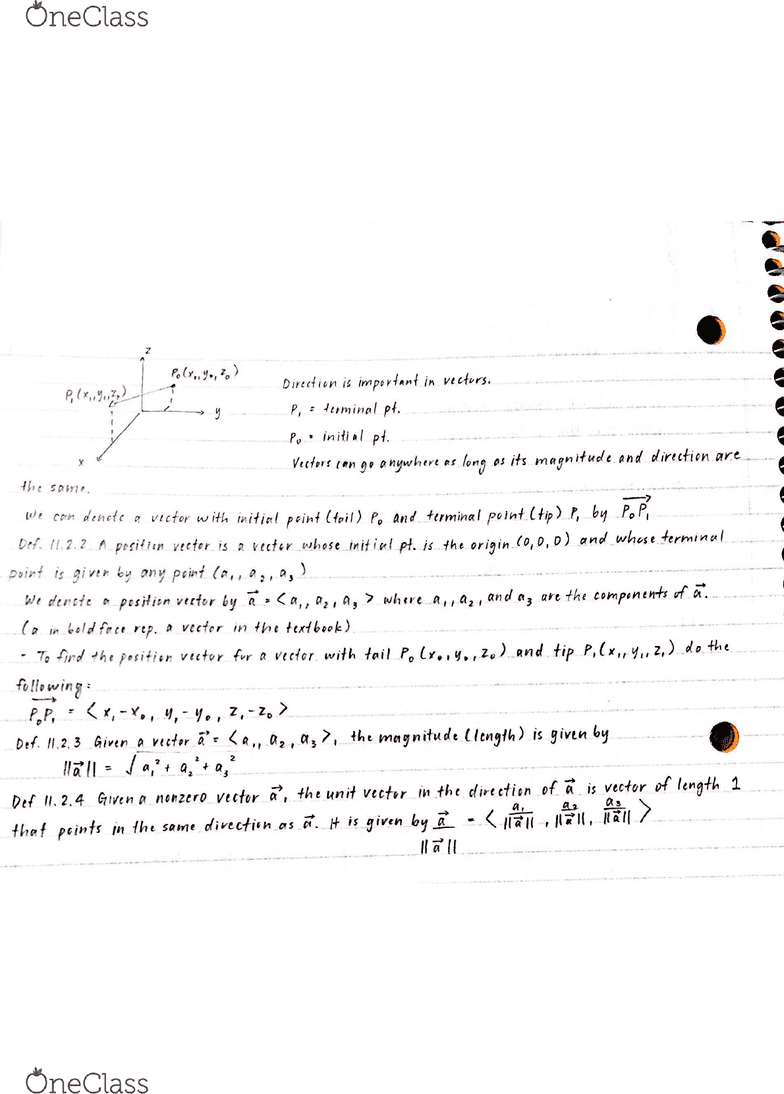 OneClass
z
P₀(x₀, y₀, z₀)
P₁(x₁, y₁, z₁)
y
x
Direction is important in vectors.
P₁ = terminal pt.
P₀ = initial pt.
Vectors can go anywhere as long as its magnitude and direction are
the same.
We can denote a vector with initial point (tail) P₀ and terminal point (tip) P₁ by →P₀P₁
Def. 11.2.2 A position vector is a vector whose initial pt. is the origin (0,0,0) and whose terminal
point is given by any point (a₁, a₂, a₃)
We denote a position vector by →a = <a₁, a₂, a₃> where a₁, a₂, and a₃ are the components of →a.
(a in boldface rep. a vector in the textbook)
- To find the position vector for a vector with tail P₀(x₀, y₀, z₀) and tip P₁(x₁, y₁, z₁) do the
following:
→P₀P₁ = <x₁-x₀, y₁-y₀, z₁-z₀>
Def. 11.2.3 Given a vector →a = <a₁, a₂, a₃>, the magnitude (length) is given by
||→a|| = √(a₁² + a₂² + a₃²)
Def 11.2.4 Given a nonzero vector →a, the unit vector in the direction of →a is vector of length 1
that points in the same direction as →a. It is given by →a/||→a|| = <a₁/||→a||, a₂/||→a||, a₃/||→a||>
OneClass